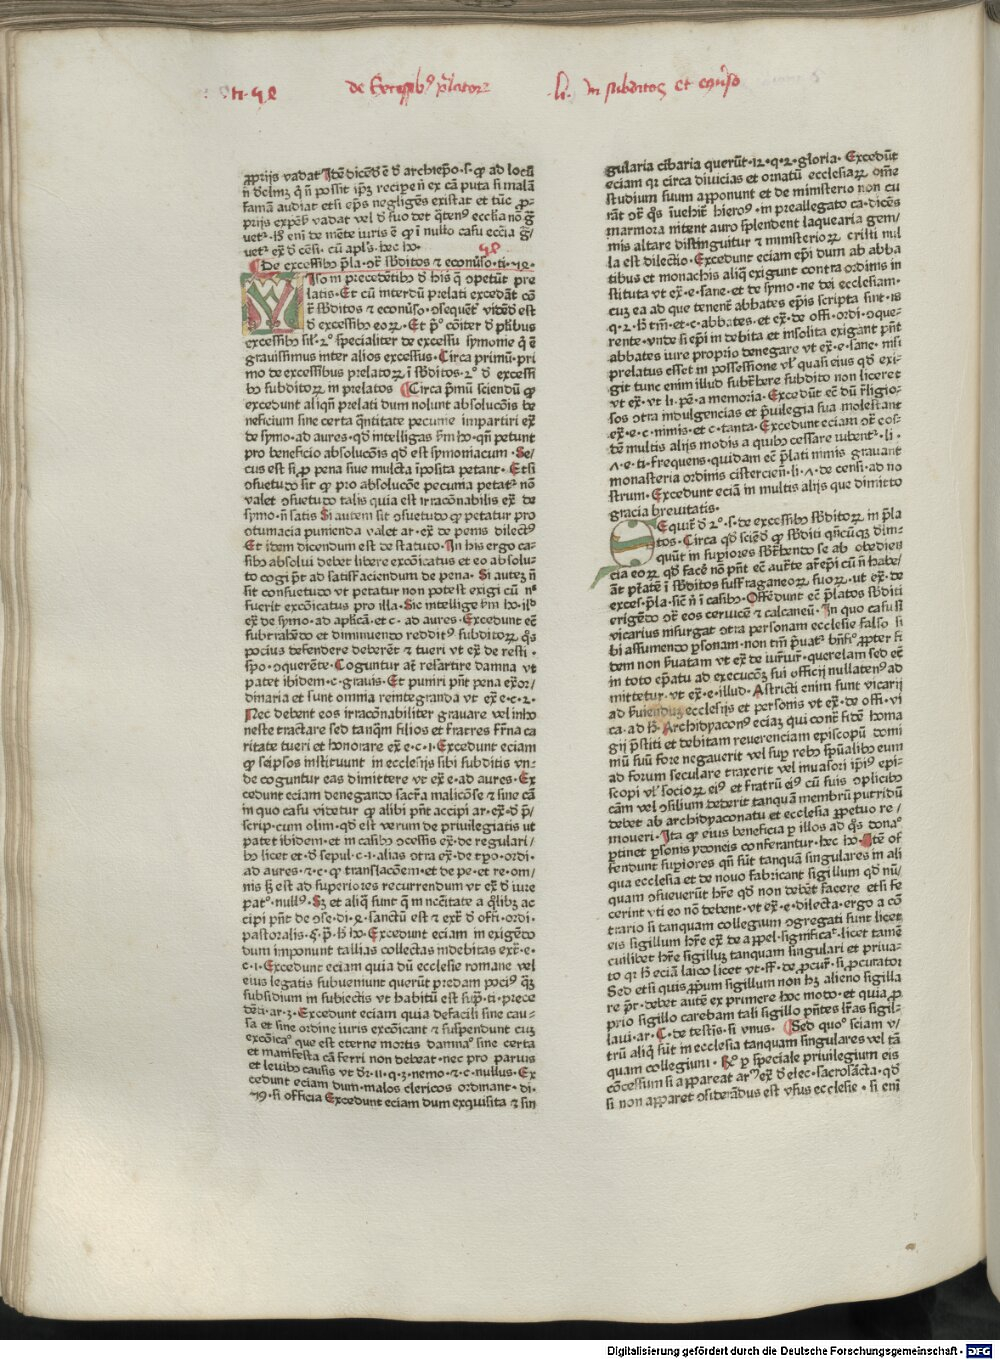 ti · 42 de excessib9 p̄lator₂ · li · in subditos et econũso
prijs vadat Itē dicēd ē đ archiep̄o · s · ꝙ ad locū
famā audiat etsi ep̄s negligēs existat et tūc ꝓ⸗
De excessibꝫ p̄la · ↄtͬ s̄bditos ⁊ econũso · ti · 42 ·
Iso in precedentibꝫ đ his q̄ ↄpetūt pre
latis · Et cū interdū prelati excedāt cō
đ excessibꝫ eoꝝ · Et pͦ cōiter đ pl̄ibus
excessibꝫ sil · 2ͦ specialiter de excessu symonie q̄ ē
grauissimus inter alios excessus · Circa primū · pri
mo de excessibus prelatoꝝ ī s̄bditos · 2ͦ đ excessi
bꝫ subditoꝝ in prelatos Circa p̄mū sciendū ꝙ
excedunt aliqñ prelati dum nolunt absolucōis be
neficium sine certa q̄ntitate pecunie impartiri ex̄
de symo · ad aures · qđ intelligas h̄m hͦ · qñ petunt
pro beneficio absolucōis qđ est symoniacum · Se/
cus est si ꝓ pena siue mulcta īposita petant · Etsi
ↄsuetudo sit ꝙ pro absolucōe pecunia petatͬ nō
valet ↄsuetudo talis quia est irracōnabilis ex̄ de
symo · ñ satis Si autem sit ↄsuetudo ꝙ petatur pro
ↄtumacia punienda valet ar · ex̄ de penis dilectꝰ
Et idem dicendum est de statuto · In his ergo ca⸗
sibꝫ absolui debet libere excōicatus et eo absolu⸗
to cogi p̄t ad satisfaciendum de pena · Si autez ñ
sit consuetudo vt petatur non potest exigi cū nͥ
fuerit excōicatus pro illa · Sic intellige h̄m hͦ · illđ
ex̄ de symo · ad aplicā · et c · ad aures · Excedunt ec̄
subtrahēdo et diminuendo redditꝰ subditoꝝ q̄s
pocius defendere deberēt ⁊ tueri vt ex̄ de resti ·
spo · ↄquerēte · Coguntur aūt resartire damna vt
patet ibidem · c · grauis · Et puniri pn̄t pena ex̄or/
dinaria et sunt omnia reintegranda vt ex̄ e · c · 2 ·
Nec debent eos irracōnabiliter grauare vel inho
neste tractare sed tanq̄m filios et fratres fr̄na ca
ritate tueri et honorare ex̄ e · c · 1 · Excedunt eciam
ꝙ seipsos instituunt in ecclesijs sibi subditis vn⸗
de coguntur eas dimittere vt ex̄ e · ad aures · Ex
cedunt eciam denegando sacr̄a maliciōse ⁊ sine cā
in quo casu videtur ꝙ alibi pn̄t accipi ar · ex̄ · đ p̄/
scrip · cum olim · qđ est verum de priuilegiatis ut
patet ibidem · et in casibꝫ ↄcessis ex̄ · de regulari/
bꝫ licet et · đ sepul · c · 1 · alias ↄtra ex̄ · de tꝑo · ordi ·
ad aures · ⁊ · c · ꝙ translacōem · et de pe · et re · om/
nis hꝫ est ad superiores recurrendum vt ex̄ đ iure
patͦ · nullꝰ · Sꝫ et aliq̄ sunt q̄ in nc̄itate a q̄libꝫ ac
cipi pn̄t de ↄse · di · 4 · sanctū est ⁊ extͬ đ offi · ordi ·
pastoralis · § · p̄ · hͦ hͦ · Excedunt eciam in exigēdo
dum imponunt tallias collectas indebitas extͬ · e ·
c · 1 · Excedunt eciam quia dū ecclesie romane vel
eius legatis subueniunt querūt predam pociꝰ q̄ꝫ
subsidium in subiectis vt habitū est sup̄ · ti · prece
dēti · ar · 3 · Excedunt eciam quia defacili sine cau⸗
sa et sine ordine iuris excōicant ⁊ suspendunt cuꝫ
excōicaͦ que est eterne mortis damnaͦ sine certa
et manifesta cā ferri non debeat · nec pro paruis
et leuibꝫ causis vt đr · 11 · q · 3 · nemo · ⁊ · c · nullus · Ex
cedunt eciam dum malos clericos ordinant · di ·
79 · si officia Excedunt eciam dum exquisita ⁊ sin
gularia cibaria querūt · 12 · q · 2 · gloria · Excedūt
eciam qͬ circa diuicias et ornatū ecclesiaꝝ om̄e
studium suum apponunt et de ministerio non cu
rāt ↄtͬ q̄s īuehitͬ hieroꝰ · in preallegato ca · dicēs
marmora nitent auro splendent laquearia gem/
mis altare distinguitur ⁊ ministeriorͬ cristi nul
la est dilectio · Excedunt eciam ep̄i dum ab abba
tibus et monachis aliq̄ exigunt contra ordinis in
stituta vt ex̄ · e · sane · et de symo · ne dei ecclesiam ·
cuꝫ ea ad que tenentͬ abbates ep̄is scripta sunt · 18
q · 2 · hͦ tm̄ · et · c · abbates · et ex̄ · de offi · ordi · ↄque⸗
rente · vnde si ep̄i indebita et insolita exigant pn̄t
abbates iure proprio denegare vt ex̄ · e · sane · nisi
prelatus esset in possessione vl̄ quasi eius qđ exi⸗
git tunc enim illud subtͬhere subdito non liceret
vt ex̄ · vt li · pē · a memoria · Excedūt ec̄ dū r̄ligio⸗
sos ↄtra indulgencias et p̄uilegia sua molestant
ex̄ · e · c · nimis · et c · tanta · Excedunt eciam ↄtͬ eos⸗
dē multis alijs modis a quibꝫ cessare iubentͬ · li ·
6 · e · ti · frequens · quidam ec̄ p̄lati nimis grauant
monasteria ordinis cistercień · li · 6 · de censi · ad no
strum · Excedunt eciā in multis alijs que dimitto
gracia breuitatis ·
Equitͬ đ 2ͦ · s · de excessibꝫ s̄bditoꝝ in p̄la
tos · Circa qđ sciēđ ꝙ s̄bditi qñcūqꝫ đlin⸗
quūt in supiores s̄btͬhendo se ab obedien
cia eoꝝ qđ facē nō pn̄t
exces · p̄la · sic̄ ñ ī casibꝫ · Offēdunt ec̄ p̄latos s̄bditi
erigēdo ↄtͬ eos ceruicē ⁊ calcaneū · In quo casu si
vicarius insurgat ↄtra personam ecclesie falso si
bi assumendo ꝑsonam · non tm̄ p̄uatͬ bn̄fiͦ ꝓpter fi
dem non s̄uatam vt ex̄ de iurͬiurͬ · querelam sed ec̄
in toto ep̄atu ad execucōꝫ sui officij nullatenꝰ ad
mittetur · vt ex̄ · e · illud · Astricti enim sunt vicarij
ad s̄uiendum ecclesijs et personis vt ex̄ · de offi · vi
ca · ad hͦ · Archidyaconꝰ eciaꝫ qui contͬ fidē homa
gij p̄stiti et debitam reuerenciam episcopū domi
nū suū fore negauerit vel suꝑ rebꝫ sp̄ualibꝫ eum
ad forum seculare traxerit vel inuasori ip̄iꝰ epi⸗
scopi vl̄ socioꝝ eiꝰ et fratrū eiꝰ cū suis ↄplicibꝫ
cām vel ↄsilium dederit tanquā membrū putridū
debet ab archidyaconatu et ecclesia ꝑpetuo re/
moueri · Ita ꝙ eius beneficia ꝑ illos ad q̄s donaͦ
ꝑtinet ꝑsonis ydoneis conferantur · hec hͦ · Itē of
fendunt supiores qñ sūt tanquā singulares in ali
qua ecclesia et de nouo fabricant sigillum qđ nū/
quam ↄsueuerūt hr̄e qđ non debēt facere etsi fe
cerint vti eo nō debent · vt ex̄ · e · dilecta · ergo a cō
trario si tanquam collegium ↄgregati sunt licet
eis sigillum hr̄e ex̄ de appel · significaͬ · licet tamē
cuilibet hr̄e sigilluꝫ tanquam singulari et priua⸗
to qͬ hͦ eciā laico licet vt · ff · de ꝓcurͬ · si ꝓcurator
Sed etsi quis ꝓprium sigillum non hꝫ alieno sigilla
re p̄t · debet autē exprimere hoc modo · et quia ꝓ
prio sigillo carebam tali sigillo pn̄tes lr̄as sigil⸗
laui · ar · C · de testis · si vnus · Sed quoͦ sciam v/
trū aliq̄ sūt in ecclesia tanquam singulares vel tā
quam collegium · Rͦ ꝑ speciale priuilegium eis
cōcessum si appareat arͦ ex̄ đ elec · sacrosācta · qđ
si non apparet ↄsiderādus est vsus ecclesie · si enī
Digitalisierung gefördert durch die Deutsche Forschungsgemeinschaft - DFG